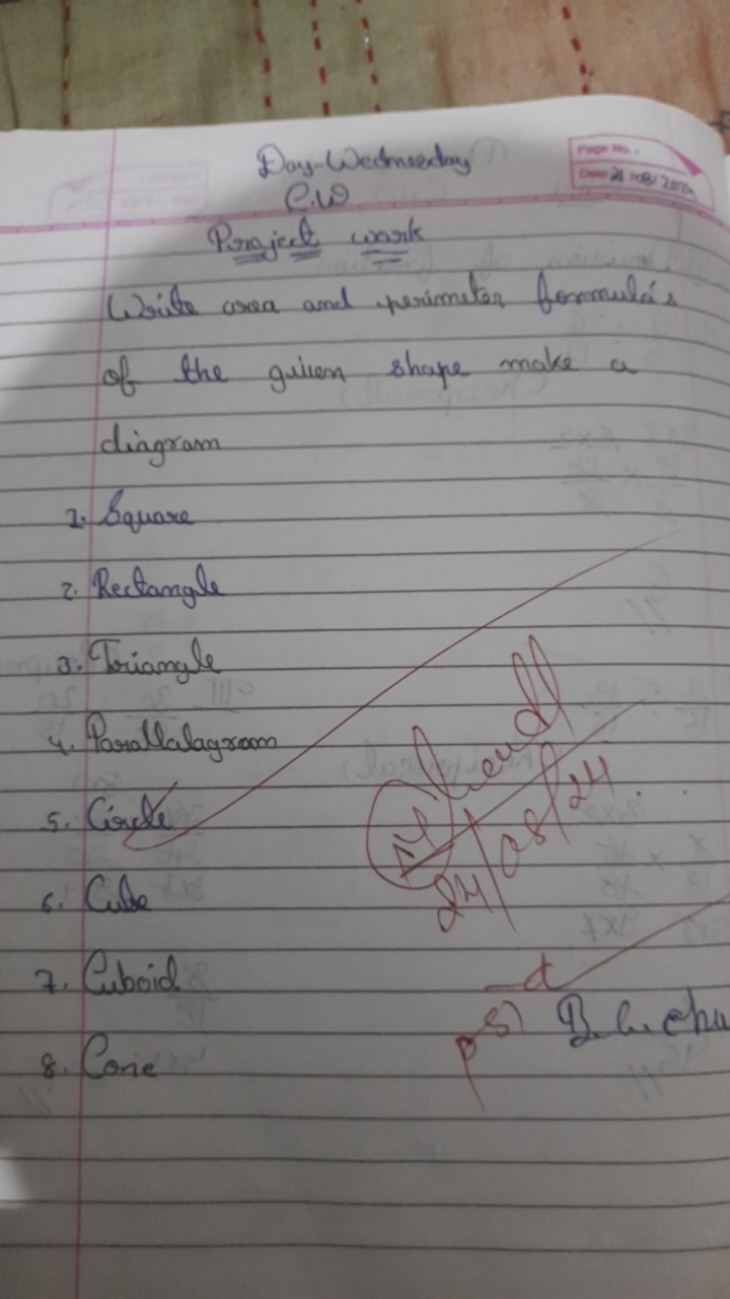 Day-Wednesday
Page No.
Date 21/08/2024
C.W
Project work
Write area and perimeter formula's
of the given shape make a
diagram
1. Square
2. Rectangle
3. Triangle
4. Parallalagram
5. Circle
6. Cube
7. Cuboid
8. Cone
24/08/24